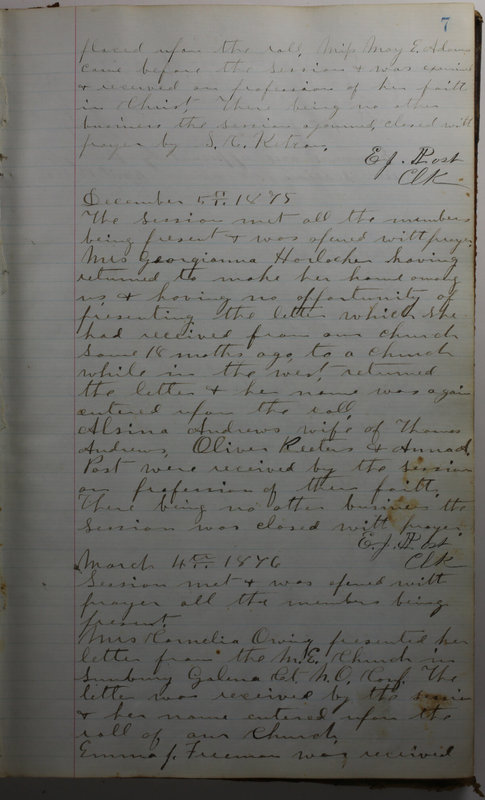 7
placed upon the roll, Miss May E. Adams
came before the Session & was examined
& received on profession of her faith
in Christ There being no other
business the session ajourned, closed with
prayer by S. R. Ketcam.
E. J. Post
Clk
December 5th 1875
The Session met all the members
being present & was opened with prayer
Mrs Georgianna Horlocher having
returned to make her home among
us & having no opportunity of
presenting the letter which she
had received from our church
some 18 moths ago, to a church
while in the west, returned
the letter & her name was again
entered upon the roll,
Alsina Andrews wife of Thomas
Andrews, Oliver Reeters &
Post were received by the session
on profession of their faith.
There being no other business the
Session was closed with prayer
E. J. Post
Clk
March 4th 1876
Session met & was opened with
prayer all the members being
present
Mrs Kornelia Owing presented her
letter from the M. E. Church in
Sunbury Galena Ct. N. O. Conf. The
letter was received by the session
& her name entered upon the
roll of our Church
Emma J. Freeman was received